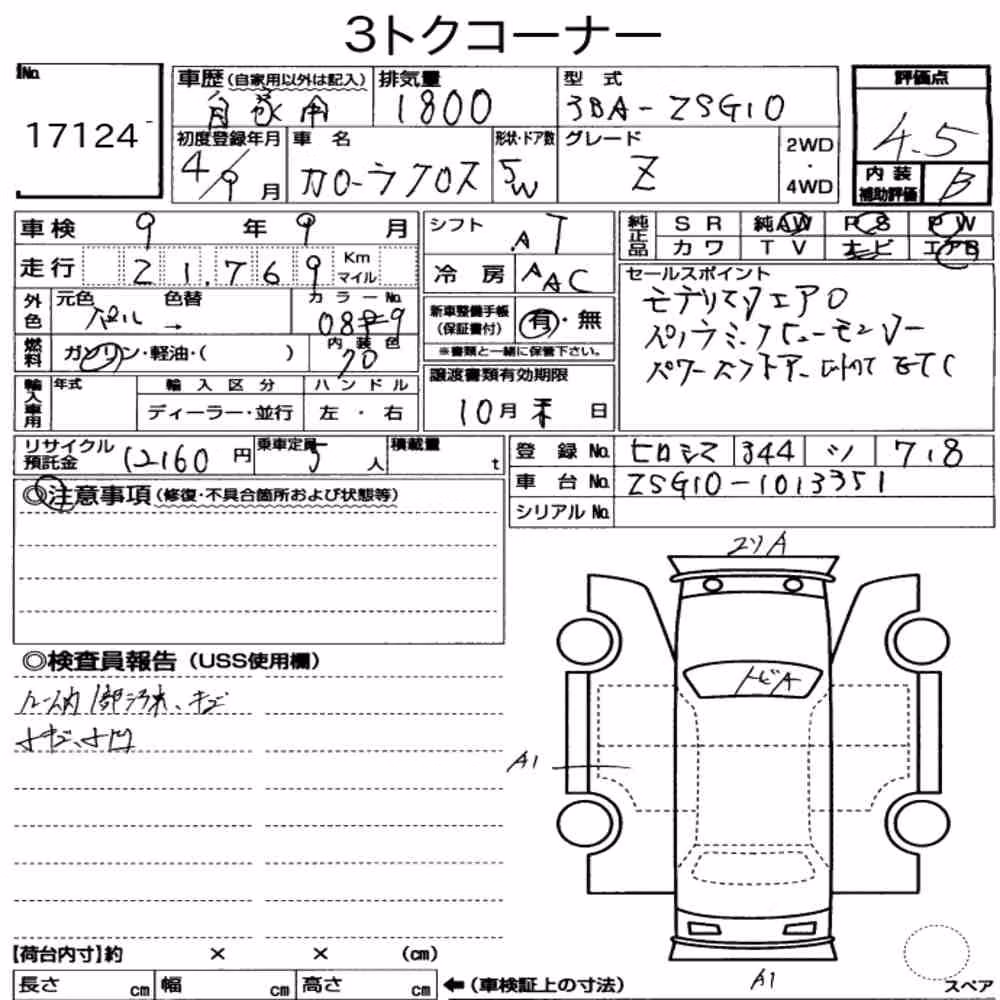 3トクコーナー
No. 17124
車歴 (自家用以外は記入) 自家用
排気量 1800
型式 3BA-ZSG10
評価点 4.5
初度登録年月 4/9月
車名 カローラクロス
形状・ドア数 5W
グレード Z
2WD・4WD
内装補助評価 B
車検 9年9月
シフト AT
純正品 SR 純AW PS PW
カワ TV ナビ エアB
走行 21,769 Km マイル
冷房 AAC
セールスポイント
モデリスタエアロ
外色 元色 パール 色替 →
カラーNo. 089
新車整備手帳(保証書付) 有・無
※書類と一緒に保管下さい。
燃料 ガソリン・軽油・( )
内装色 70
輸入車用 年式 輸入区分 ハンドル
ディーラー・並行 左・右
譲渡書類有効期限
10月末日
リサイクル預託金 12160円
乗車定員 5人
積載量 t
登録No. ヒロシマ 344 ツ 7.8
車台No. ZSG10-1013351
シリアルNo.
◎注意事項(修復・不具合箇所および状態等)
コソA
トビA
◎検査員報告(USS使用欄)
ルーム内1部汚れ、キズ
小キズ、小凹
A1
【荷台内寸】約 × × (cm)
長さ cm 幅 cm 高さ cm
←(車検証上の寸法)
A1
スペア